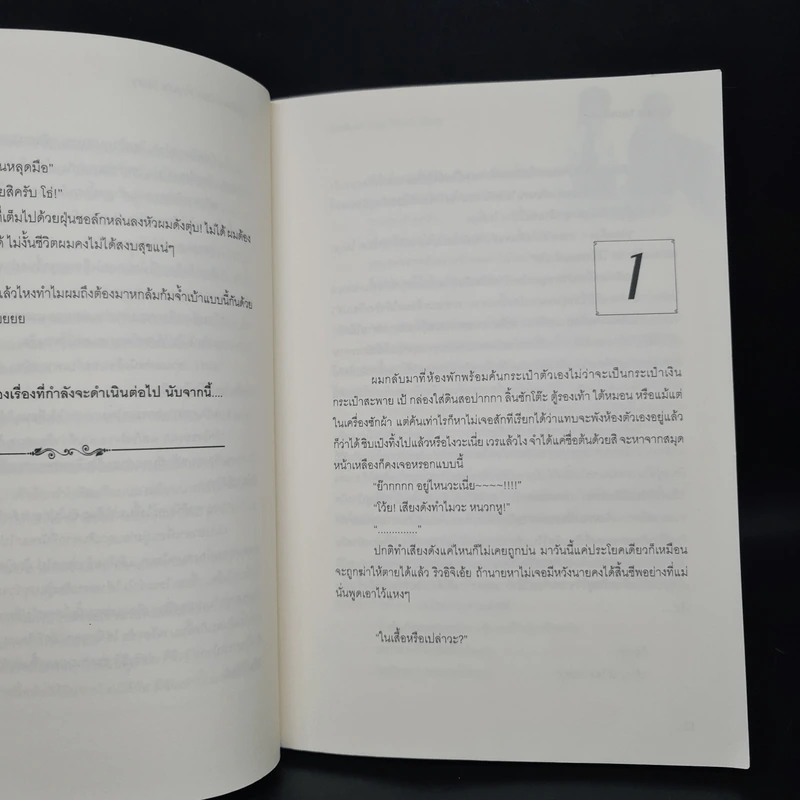 นหลุดมือ"
ยสิครับ โธ่!"
ที่เต็มไปด้วยฝุ่นชอล์กหล่นลงหัวผมดังตุ่บ! ไม่ได้ ผมต้อง
ด้ ไม่งั้นชีวิตผมคงไม่ได้สงบสุขแน่ๆ
แล้วไหงทำไมผมถึงต้องมาหกล้มก้มจ้ำเบ้าแบบนี้กันด้วย
ยยยย
องเรื่องที่กำลังจะดำเนินต่อไป นับจากนี้....
1
ผมกลับมาที่ห้องพักพร้อมค้นกระเป๋าตัวเองไม่ว่าจะเป็นกระเป๋าเงิน
กระเป๋าสะพาย เป้ กล่องใส่ดินสอปากกา ลิ้นชักโต๊ะ ตู้รองเท้า ใต้หมอน หรือแม้แต่
ในเครื่องซักผ้า แต่ค้นเท่าไรก็หาไม่เจอสักที่เรียกได้ว่าแทบจะพังห้องตัวเองอยู่แล้ว
ก็ว่าได้ ชิบเป๋งทิ้งไปแล้วหรือไงวะเนี่ย เวรแล้วไง จำได้แค่ชื่อต้นด้วยสิ จะหาจากสมุด
หน้าเหลืองก็คงเจอหรอกแบบนี้
"ย๊ากกกก อยู่ไหนวะเนี่ย~~~~!!!!"
"โว้ย! เสียงดังทำไมวะ หนวกหู!"
"..............."
ปกติทำเสียงดังแค่ไหนก็ไม่เคยถูกบ่น มาวันนี้แค่ประโยคเดียวก็เหมือน
จะถูกฆ่าให้ตายได้แล้ว ริวอิจิเอ้ย ถ้านายหาไม่เจอมีหวังนายคงได้สิ้นชีพอย่างที่แม่
นั่นพูดเอาไว้แหงๆ
"ในเสื้อหรือเปล่าวะ?"